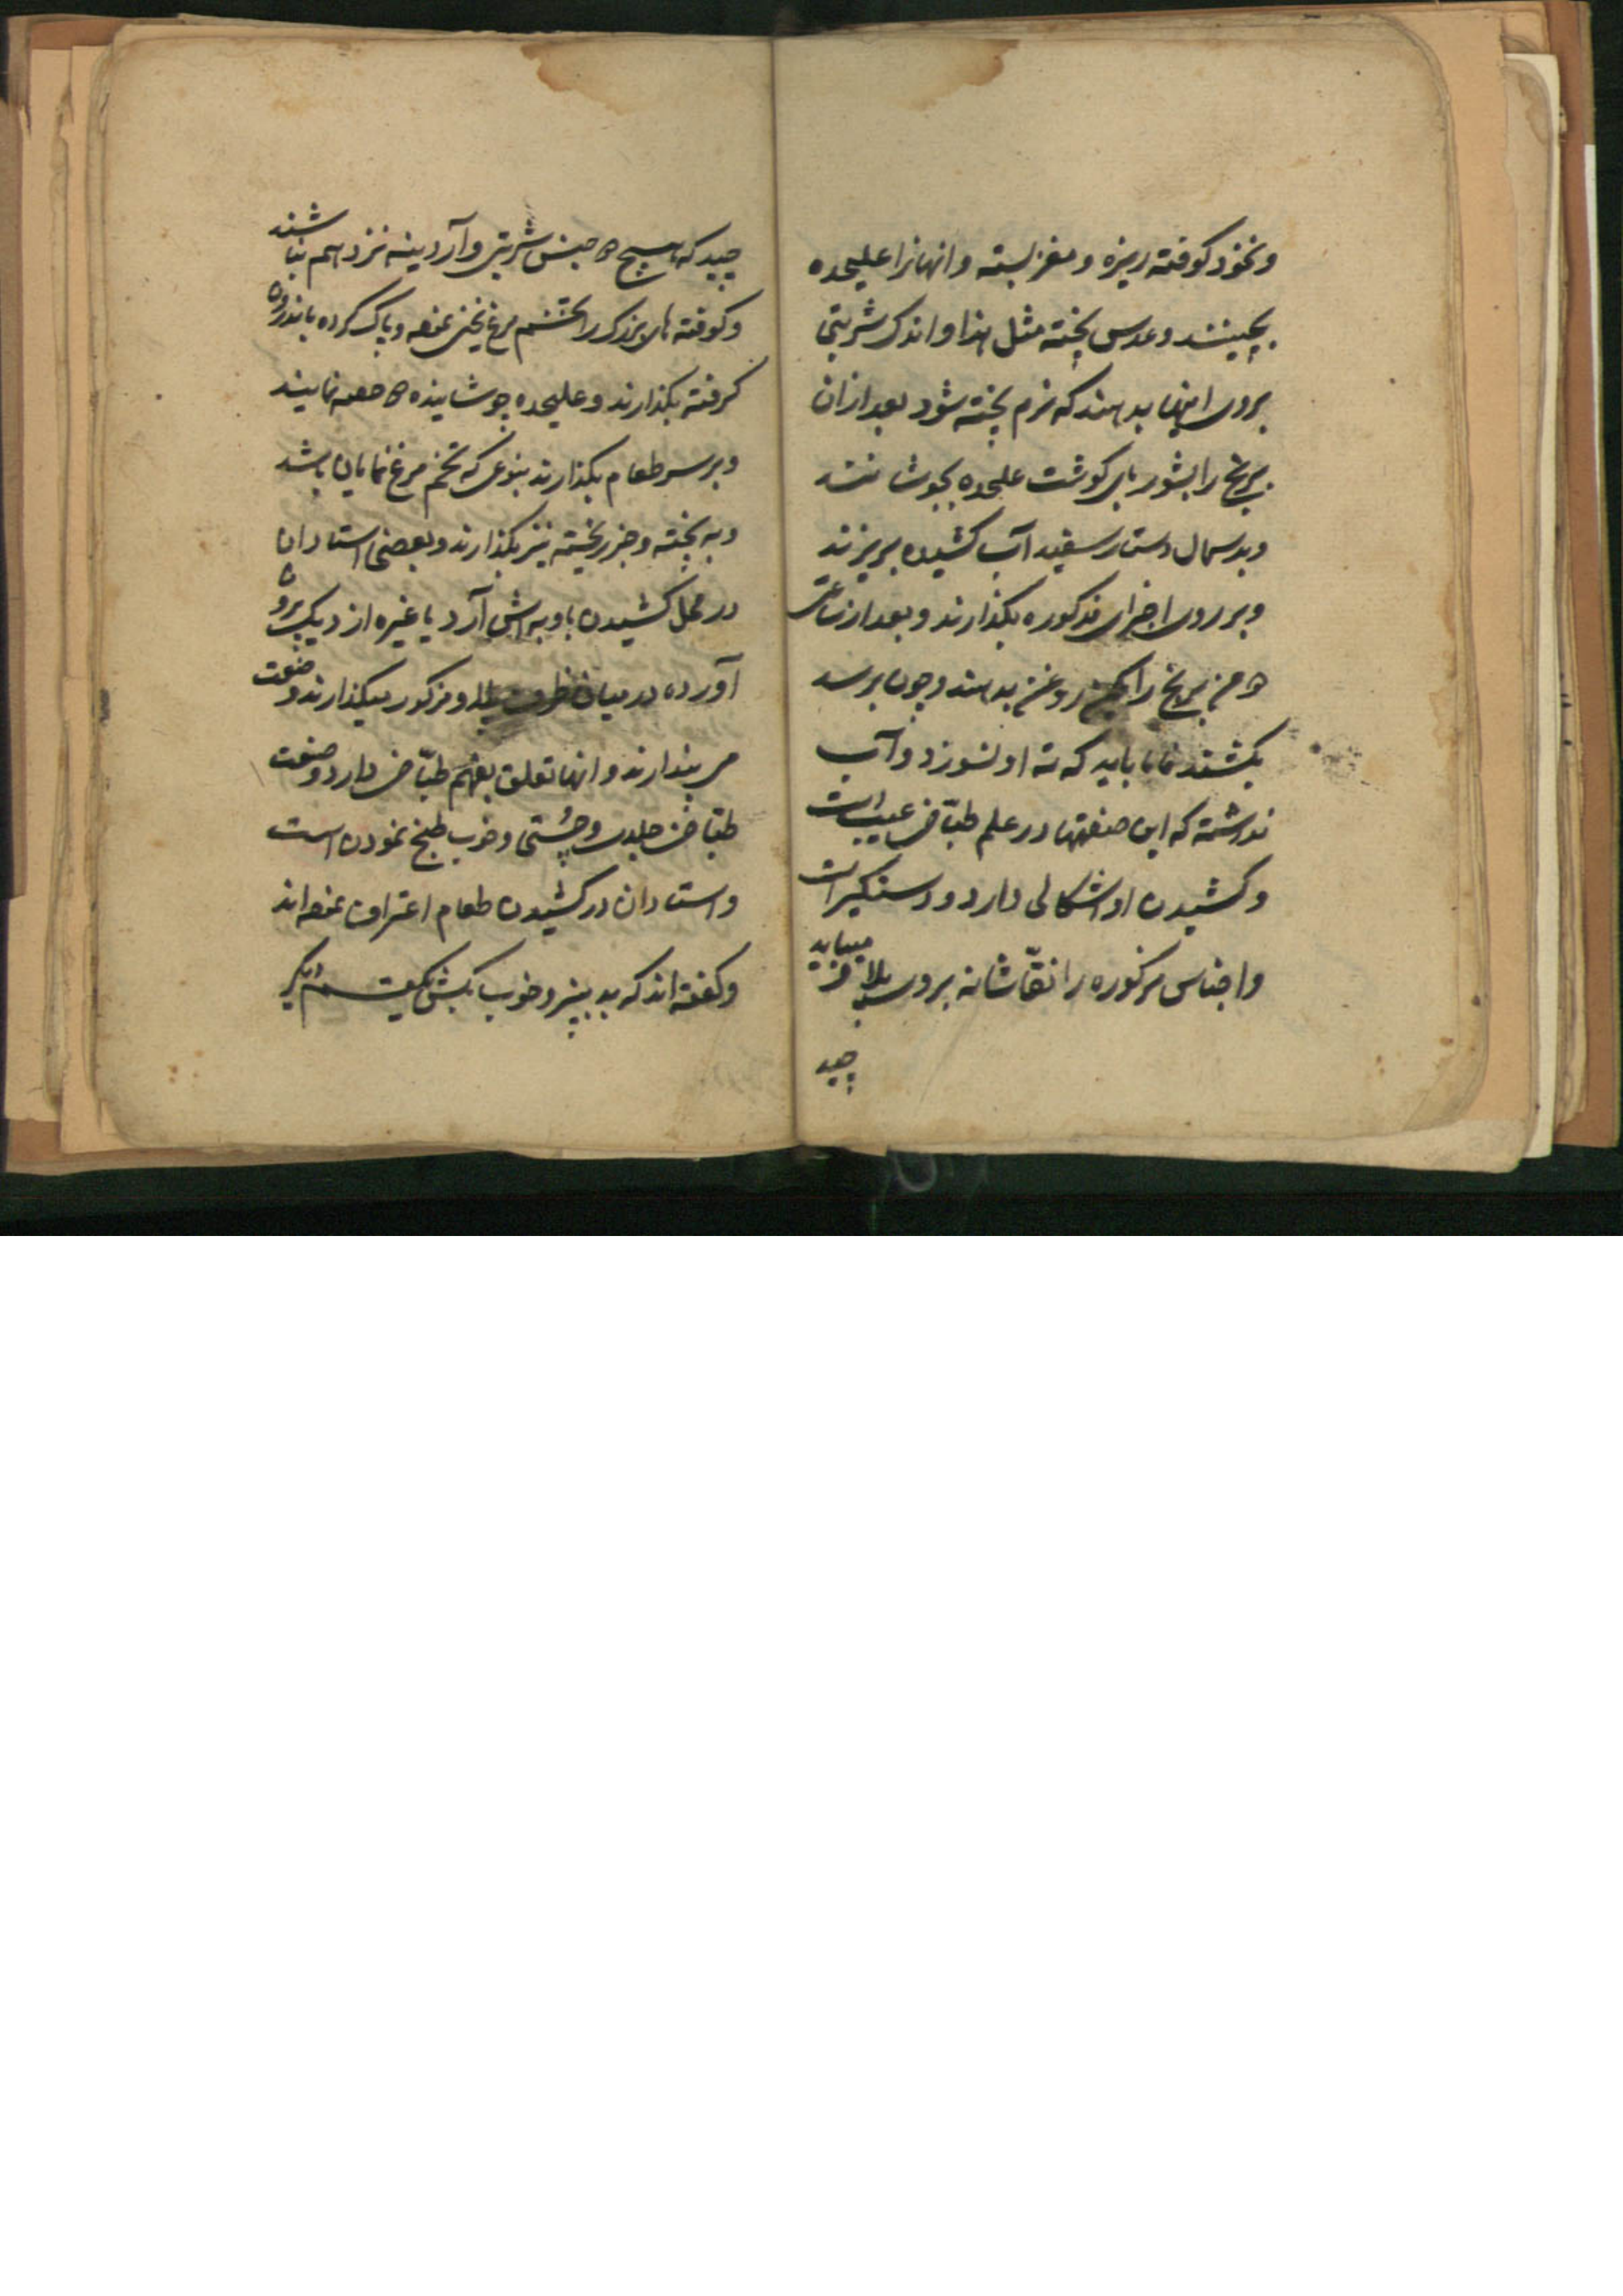 و نخود کوفته ریزه و مغز پسته و انهانرا علیحده
بچینند و عدس پخته مثل هذا و اندک شربتی
بروی اینها بدهند که نرم پخته شود بعد ازان
برنج را بشوربای کوشت علیحده بجوشانند
و بدسمال دستار سفید آب کشیده بریزند
و بر روی اجزای مذکوره بکذارند و بعد از ساعتی
من برنج را روغن بدهند و چون برسد
بکشند اما باید که ته او نسوزد و آب
نداشته که این صنعتها در علم طباخی عیب است
و کشیدن او اشکالی دارد و دستکیر است
و اجناس مزکوره را نقاشانه بروی پلاو میباید
چید
چید که هیچ جنس شربتی و آردینه نزد هم نباشند
و کوفته های بزرک را تخم مرغ یخنی نموده و پاک کرده باندرون
کرفته بکذارند و علیحده جوشانیده حصه نمایند
و بر سر طعام بکذارند بنوعی که تخم مرغ نمایان باشد
و به پخته و جزر پخته نیز بکذارند و بعضی استادان
در محل کشیدن با و به آش آرد یا غیره از دیک برون
آورده در میان ظرف پلاو مزکور میکذارند و صنعت
می پندارند و انها تعلق بفهم طباخی دارد و صنعت
طباخی جلدی و چستی و خوب طبخ نمودن است
و استادان در کشیدن طعام اعتراف نموده اند
و کفته اند که بد بپز و خوب بکش